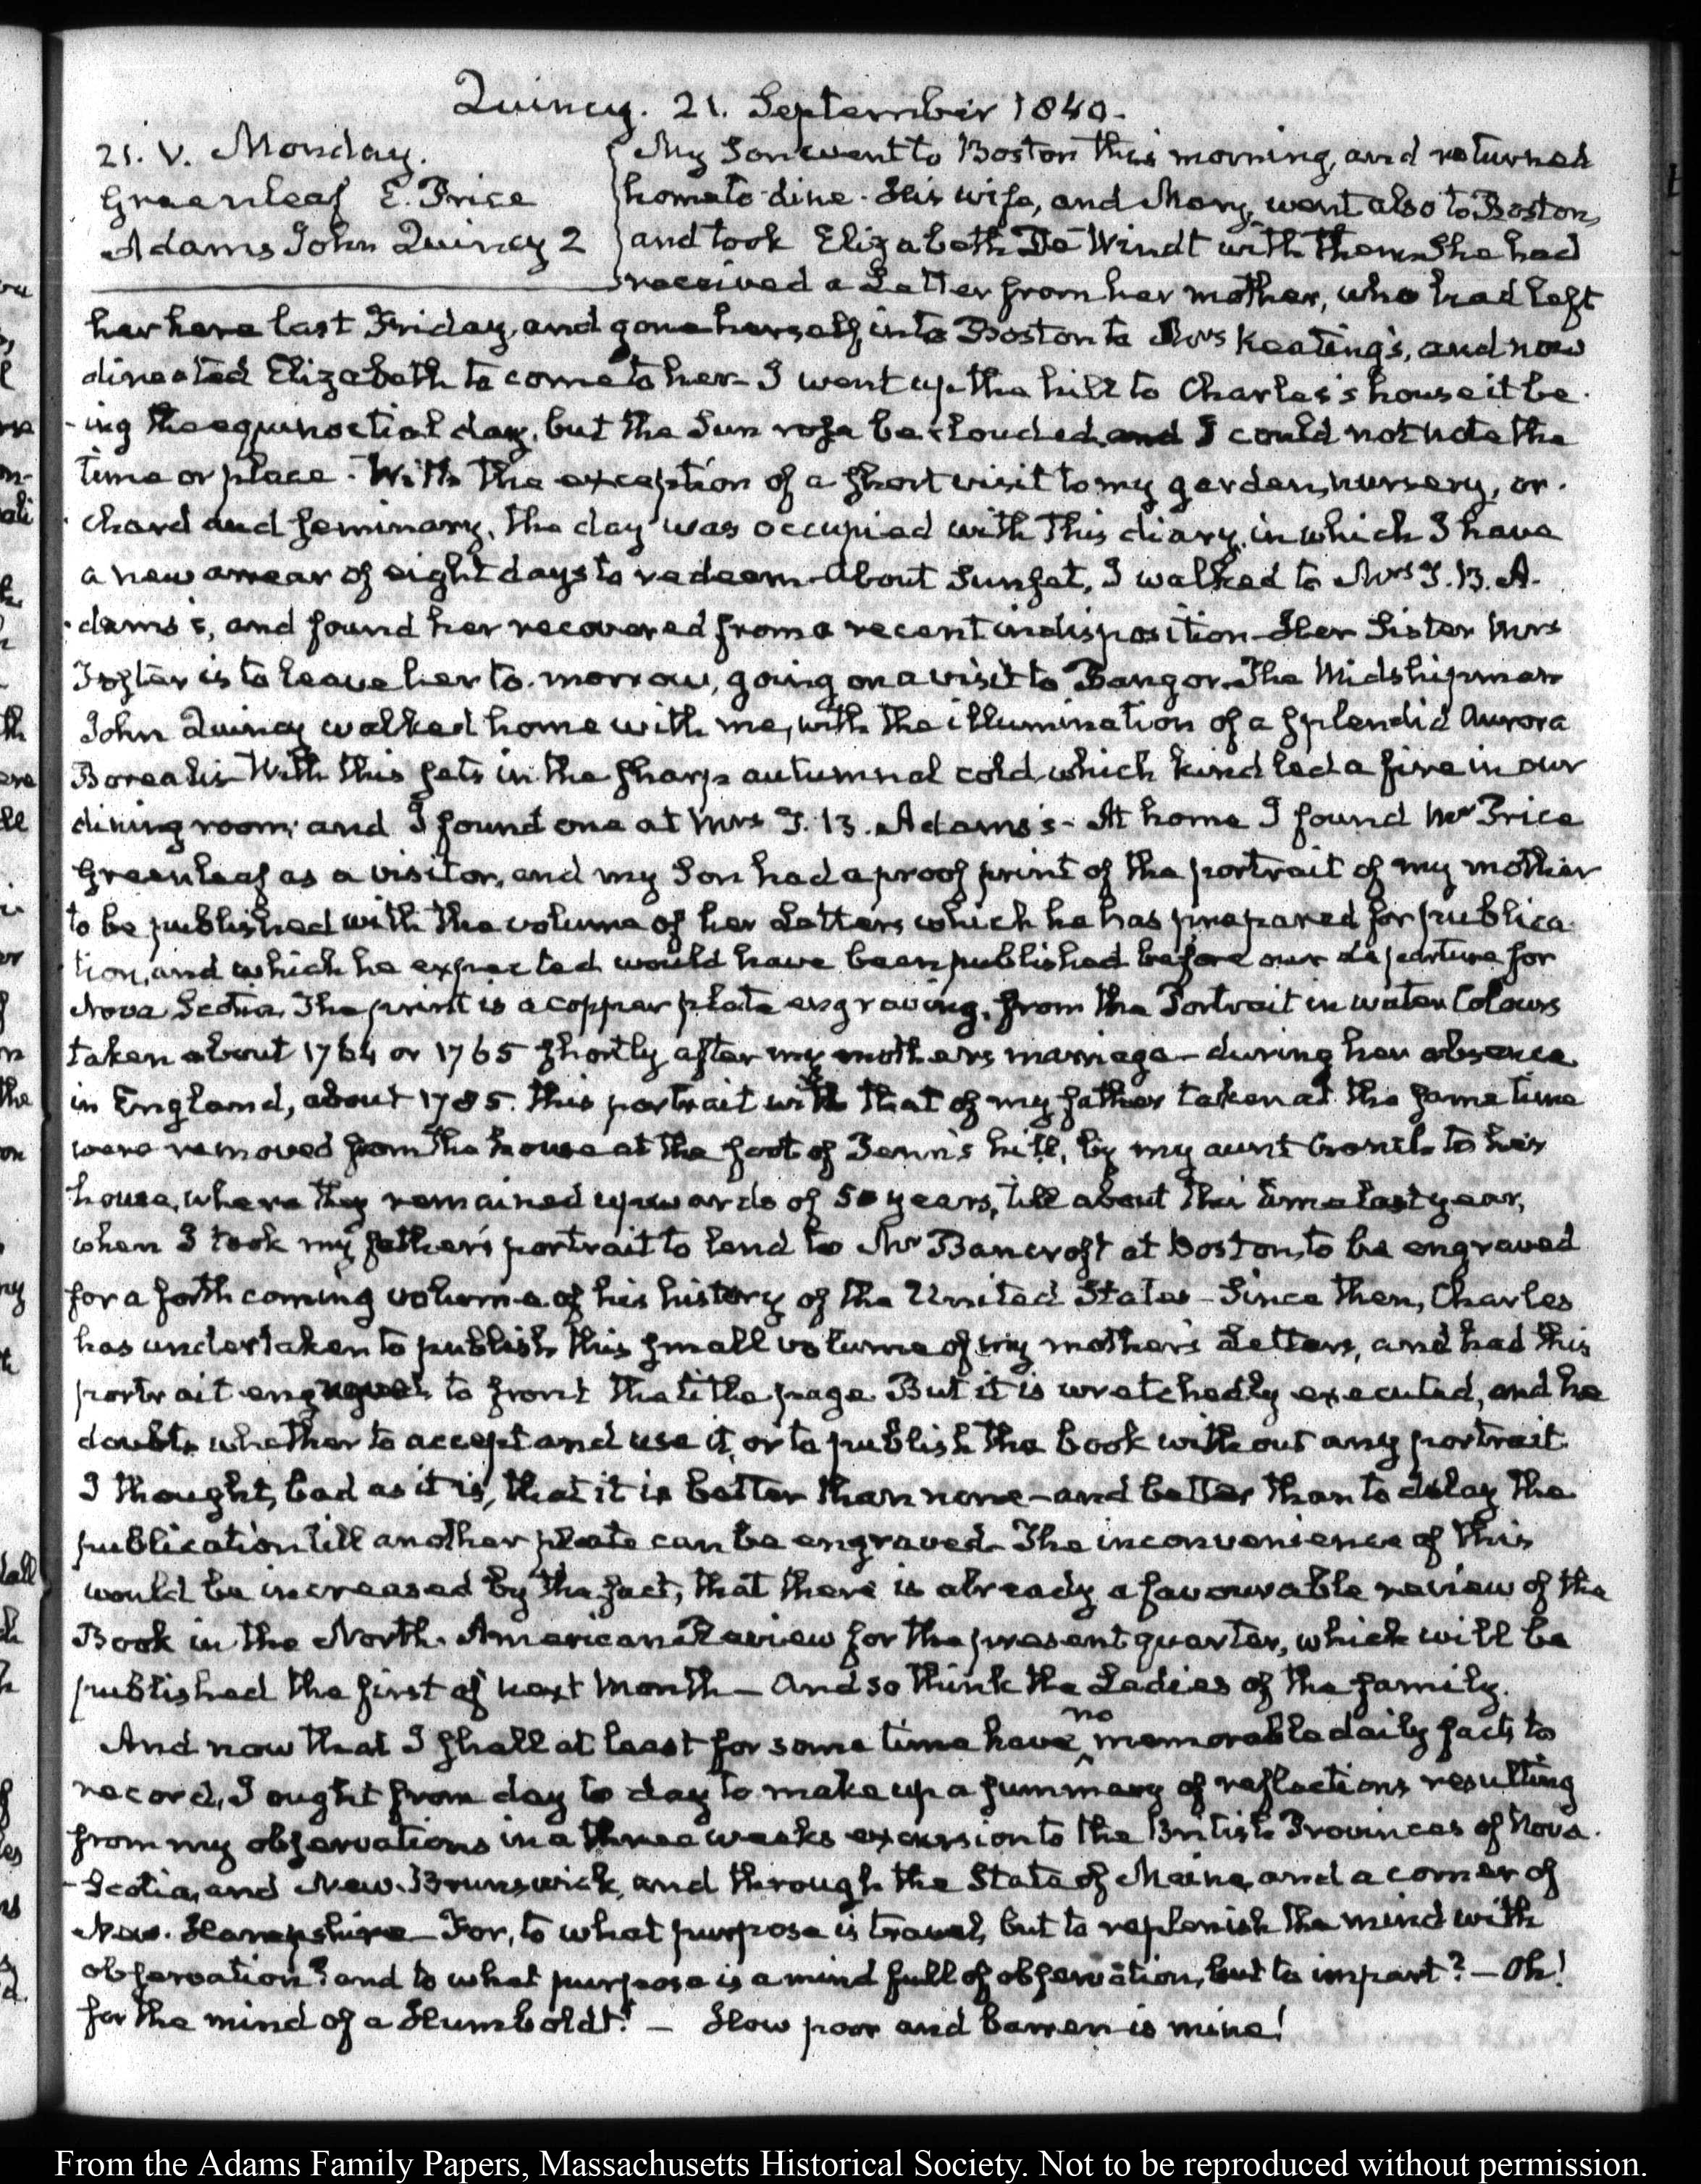 Quincy. 21. September 1840.
21. V. Monday.
Greenleaf E. Price
Adams John Quincy 2
My Son went to Boston this morning, and returned
home to dine. His wife, and Mary, went also to Boston,
and took Elizabeth De Windt with them. She had
received a Letter from her mother, who had left
her here last Friday, and gone herself, into Boston to Mrs Keating's, and now
directed Elizabeth to come to her. I went up the hill to Charles's house it be-
-ing the equinoctial day, but the Sun rose beclouded, and I could not note the
time or place. With the exception of a short visit to my garden, nursery, or-
chard and seminary, the day was occupied with this diary, in which I have
a new arrear of eight days to redeem. About Sunset, I walked to Mrs T. B. A-
-dams's, and found her recovered from a recent indisposition. Her Sister Mrs
Foster is to leave her to-morrow, going on a visit to Bangor. The Midshipman
John Quincy walked home with me, with the illumination of a splendid Aurora
Borealis. With this sets in the sharp autumnal cold, which kindled a fire in our
dining room; and I found one at Mrs T. B. Adams's. At home I found Mr Price
Greenleaf as a visitor, and my Son had a proof print of the portrait of my mother
to be published with the volume of her Letters which he has prepared for publica-
tion, and which he expected would have been published before our departure for
Nova Scotia. The print is a copper plate engraving, from the Portrait in water Colours
taken about 1764 or 1765 shortly after my mothers marriage. during her absence
in England, about 1785. this portrait with that of my father taken at the same time
were removed from the house at the foot of Penn's hill, by my aunt Cranch to her
house, where they remained upwards of 50 years, till about this time last year,
when I took my father's portrait to lend to Mr Bancroft at Boston, to be engraved
for a forth coming volume of his history of the United States. Since then, Charles
has undertaken to publish this small volume of my mother's Letters, and had this
portrait engraved to front the title page. But it is wretchedly executed, and he
doubts whether to accept and use it, or to publish the book without any portrait.
I thought, bad as it is, that it is better than none - and better than to delay the
publication till another plate can be engraved. The inconvenience of this
would be increased by the fact, that there is already a favourable review of the
Book in the North American Review for the present quarter, which will be
published the first of next Month - And so think the Ladies of the family.
And now that I shall at least for some time have no memorable daily facts to
record, I ought from day to day to make up a summary of reflections resulting
from my observations in a three weeks excursion to the British Provinces of Nova-
-Scotia, and New-Brunswick, and through the State of Maine, and a corner of
New-Hampshire. For, to what purpose is travel, but to replenish the mind with
observation? and to what purpose is a mind full of observation, but to impart? - Oh!
for the mind of a Humboldt! - How poor and barren is mine!
From the Adams Family Papers, Massachusetts Historical Society. Not to be reproduced without permission.